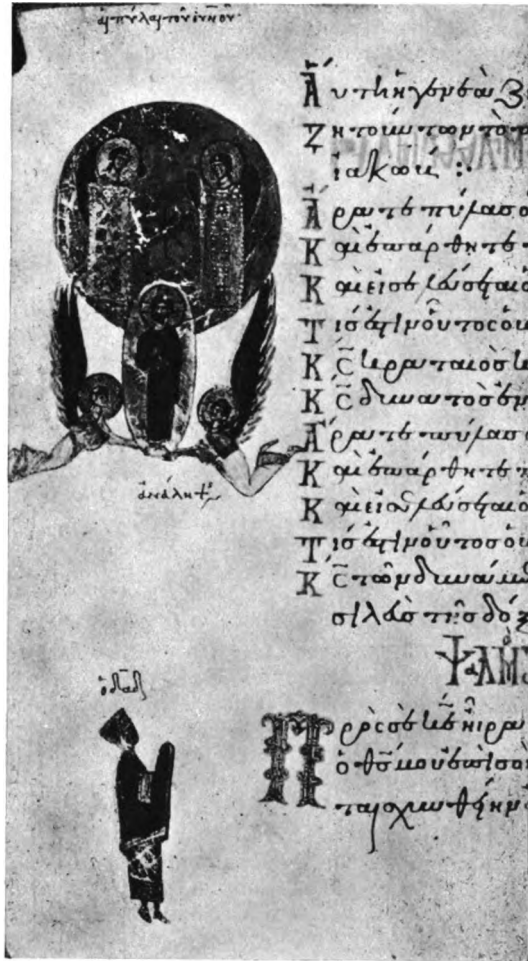 αἱ πύλαι τοῦ οὐνοῦ
Αὕτη ἡ γενεὰ ζ
Ζητούντων τὸ π
ἰακώβ :
Ἄρατε πύλας ο
Καὶ ἐπάρθητε π
Καὶ εἰσελεύσεται ὁ
Τίς ἐστιν οὗτος ὁ
Κ̅ς̅ κραταιὸς κ
Κ̅ς̅ δυνατὸς ἐν
Ἄρατε πύλας ο
Καὶ ἐπάρθητε π
Καὶ εἰσελεύσεται ὁ
Τίς ἐστιν οὗτος ὁ
Κ̅ς̅ τῶν δυνάμε
σιλεὺς τῆς δόξ
ἀνάληψ
ΨΑΛΜ
ὁ δαδ
Πρὸς σὲ κ̅ε̅ ἦρα
ὁ θ̅ς̅ μου ἐπὶ σοὶ
ταισχυνθείην